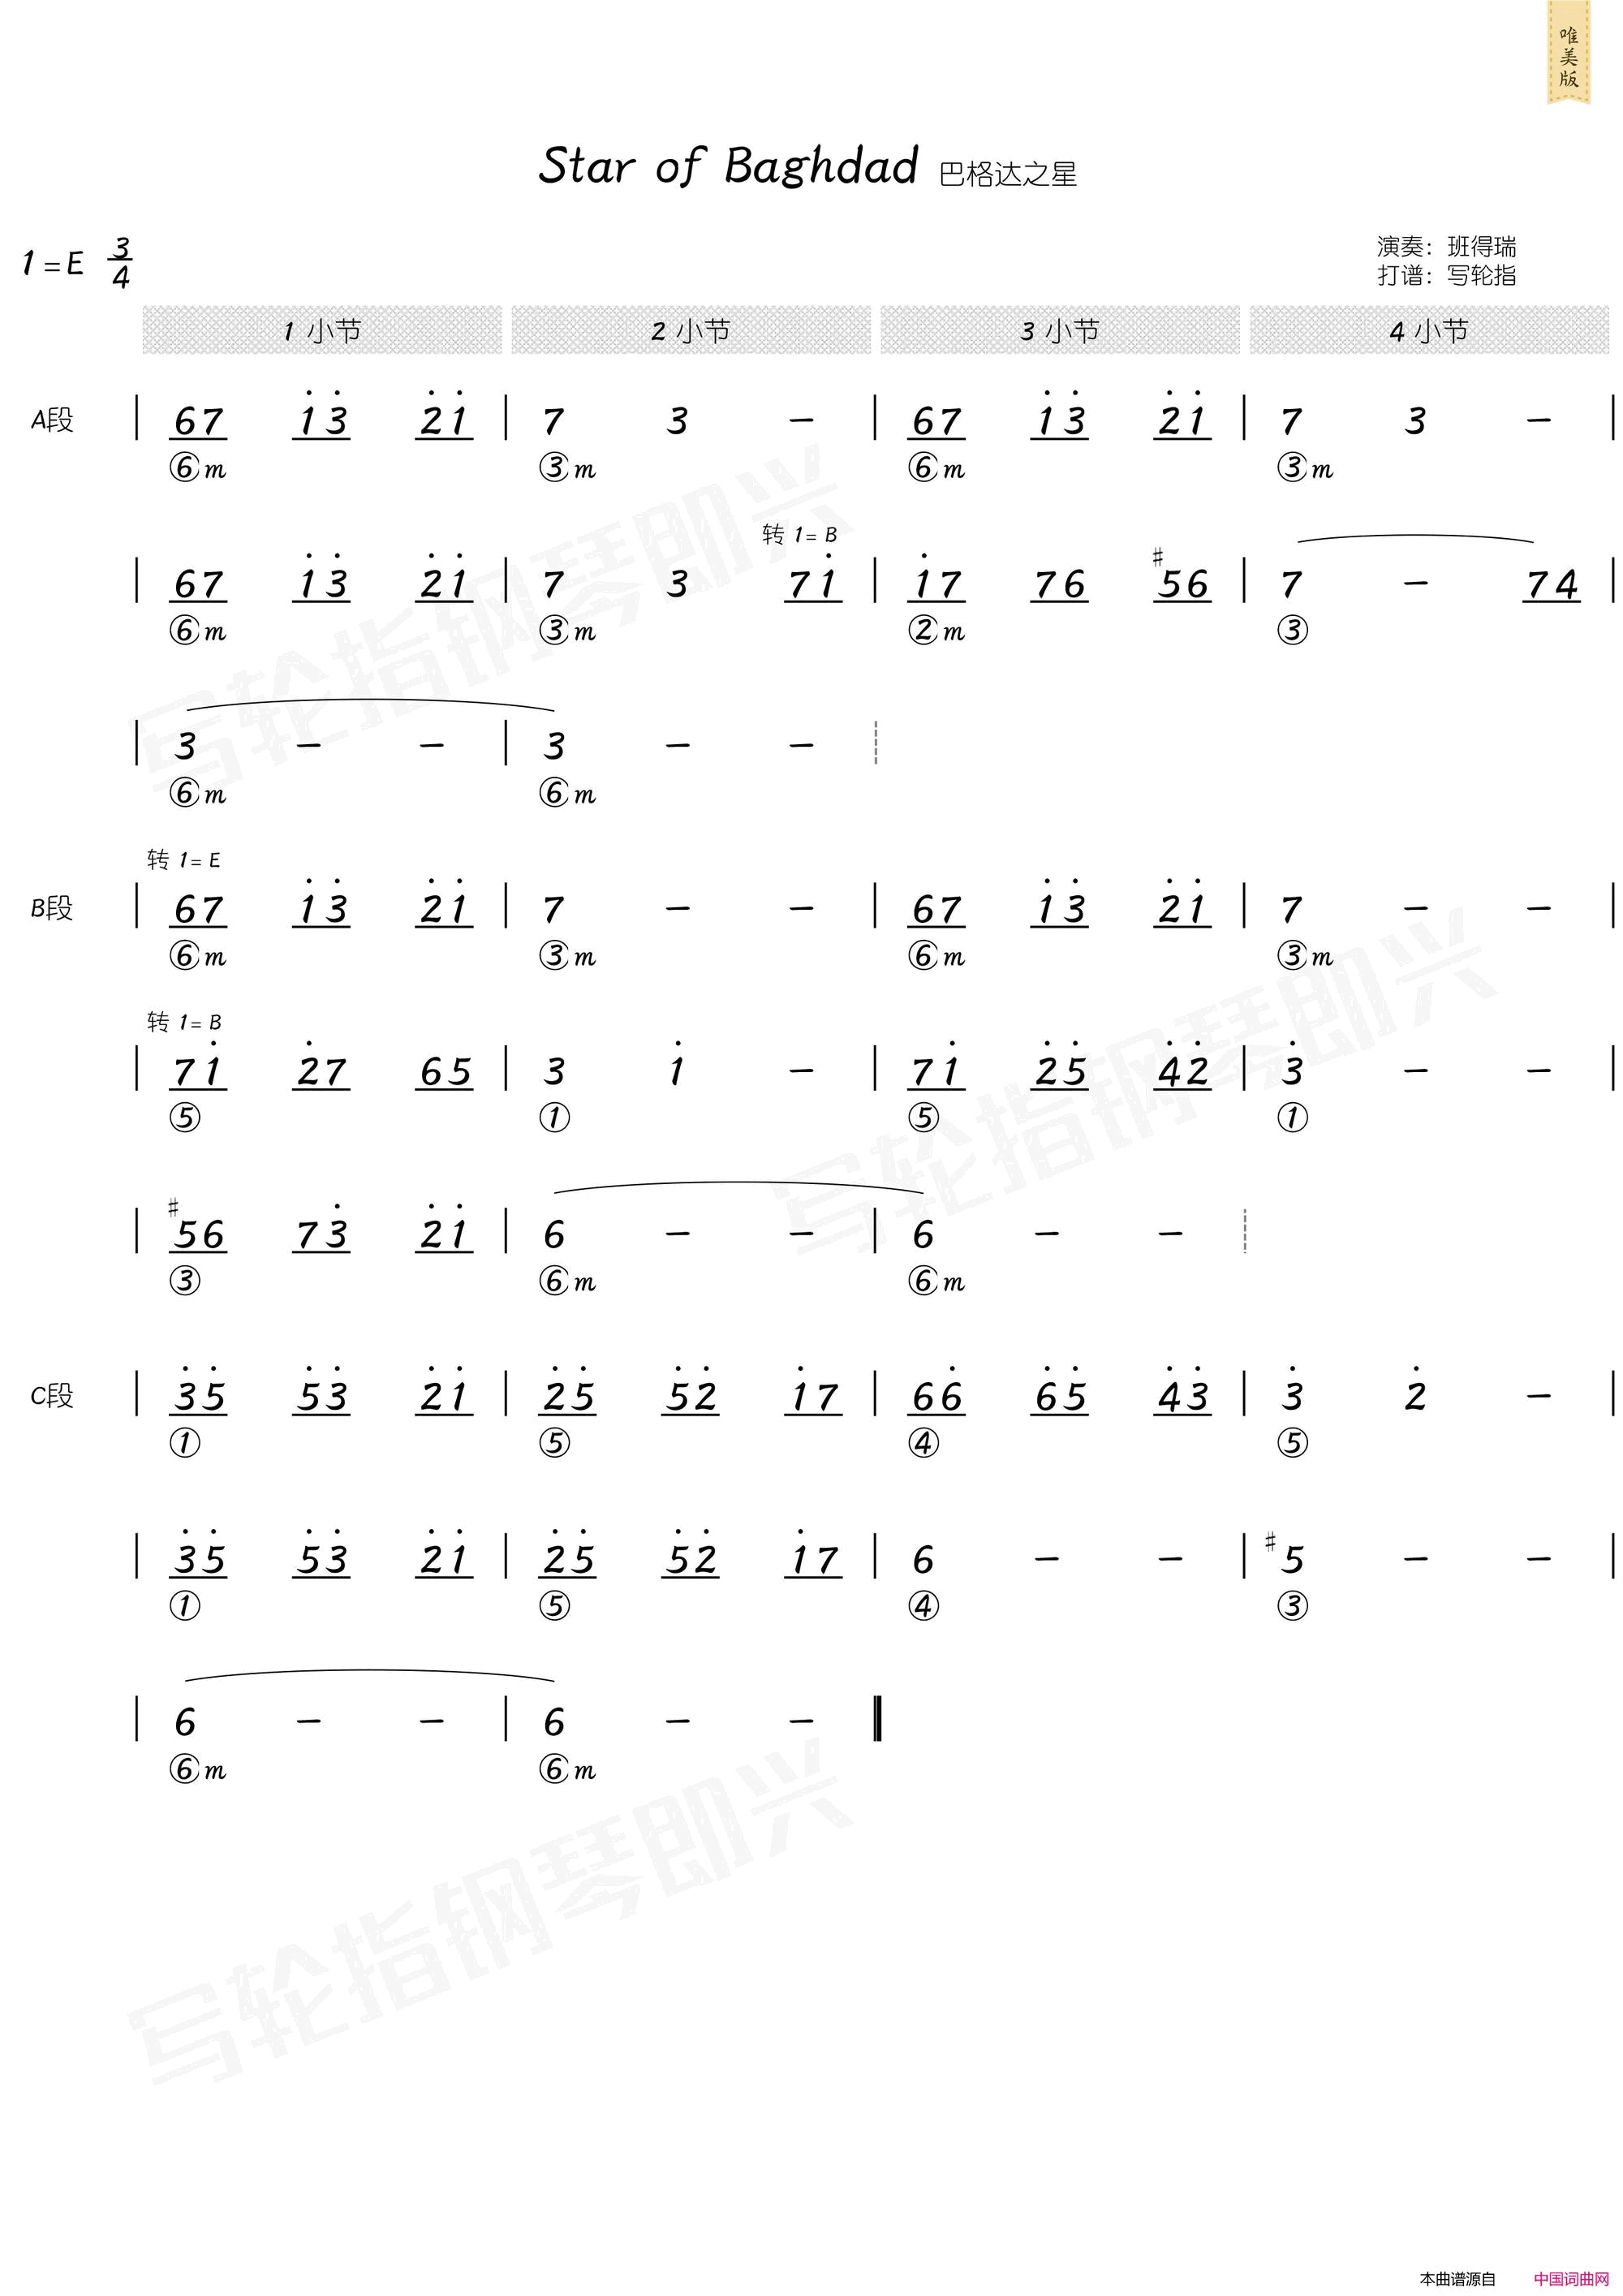 唯美版
Star of Baghdad 巴格达之星
1=E 3/4
演奏：班得瑞
打谱：写轮指
1 小节 2 小节 3 小节 4 小节
A段 | 67 1̇3̇ 2̇1̇ | 7 3 – | 67 1̇3̇ 2̇1̇ | 7 3 – |
⑥m ③m ⑥m ③m
转 1=B
| 67 1̇3̇ 2̇1̇ | 7 3 71̇ | 1̇7 76 ♯56 | 7 – 74 |
⑥m ③m ②m ③
| 3 – – | 3 – –
⑥m ⑥m
转 1=E
B段 | 67 1̇3̇ 2̇1̇ | 7 – – | 67 1̇3̇ 2̇1̇ | 7 – – |
⑥m ③m ⑥m ③m
转 1=B
| 71̇ 2̇7 65 | 3 1̇ – | 71̇ 2̇5̇ 4̇2̇ | 3̇ – – |
⑤ ① ⑤ ①
| ♯56 73̇ 2̇1̇ | 6 – – | 6 – –
③ ⑥m ⑥m
C段 | 3̇5̇ 5̇3̇ 2̇1̇ | 2̇5̇ 5̇2̇ 1̇7 | 66̇ 6̇5̇ 4̇3̇ | 3̇ 2̇ – |
① ⑤ ④ ⑤
| 3̇5̇ 5̇3̇ 2̇1̇ | 2̇5̇ 5̇2̇ 1̇7 | 6 – – | ♯5 – – |
① ⑤ ④ ③
| 6 – – | 6 – – ‖
⑥m ⑥m
写轮指钢琴即兴
写轮指钢琴即兴
写轮指钢琴即兴
本曲谱源自 中国词曲网